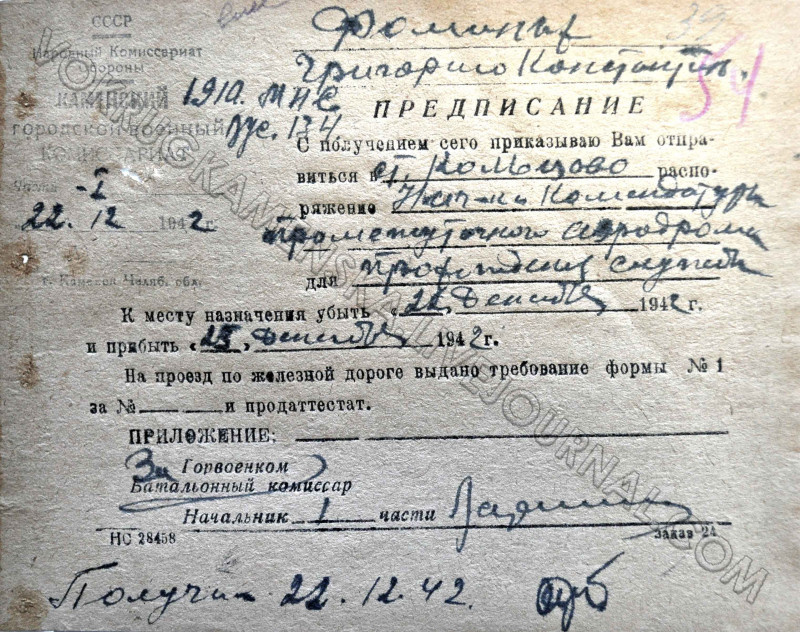 СССР
Народный Комиссариат
Обороны
КАМЕНСКИЙ
городской военный
КОМИССАРИАТ
Часть -I
„22. 12 1942г.
г. Каменск Челяб. обл.
Григорию Константин.
1910. МНС
рус. 134
54
ПРЕДПИСАНИЕ
С получением сего приказываю Вам отпра-
виться в ст. Кольцово распо-
ряжение Нач-ка Комендатуры
Промежуточного аэродрома
для прохождения службы
К месту назначения убыть «22» Декабря 1942г.
и прибыть «25» Декабря 1942г.
На проезд по железной дороге выдано требование формы №1
за №______ и продаттестат.
ПРИЛОЖЕНИЕ:
За Горвоенком
Батальонный комиссар
Начальник 1 части
НС 28458
Заказ 24
Получил 22.12.42.